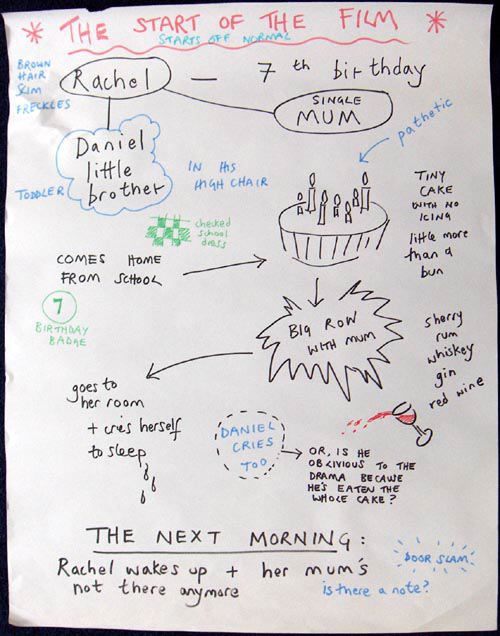 * THE START OF THE FILM *
STARTS OFF NORMAL
BROWN
HAIR
SLIM
FRECKLES
Rachel — 7th birthday
SINGLE
MUM
pathetic
Daniel
little
brother
TODDLER
IN HIS
HIGH CHAIR
TINY
CAKE
WITH NO
ICING
little more
than a
bun
checked
school
dress
COMES HOME
FROM SCHOOL
7
BIRTHDAY
BADGE
BIG ROW
WITH MUM
sherry
rum
whiskey
gin
red wine
goes to
her room
+ cries herself
to sleep
DANIEL
CRIES
TOO
OR, IS HE
OBLIVIOUS TO THE
DRAMA BECAUSE
HE'S EATEN THE
WHOLE CAKE?
THE NEXT MORNING:
Rachel wakes up + her mum's
not there anymore
DOOR SLAM
is there a note?